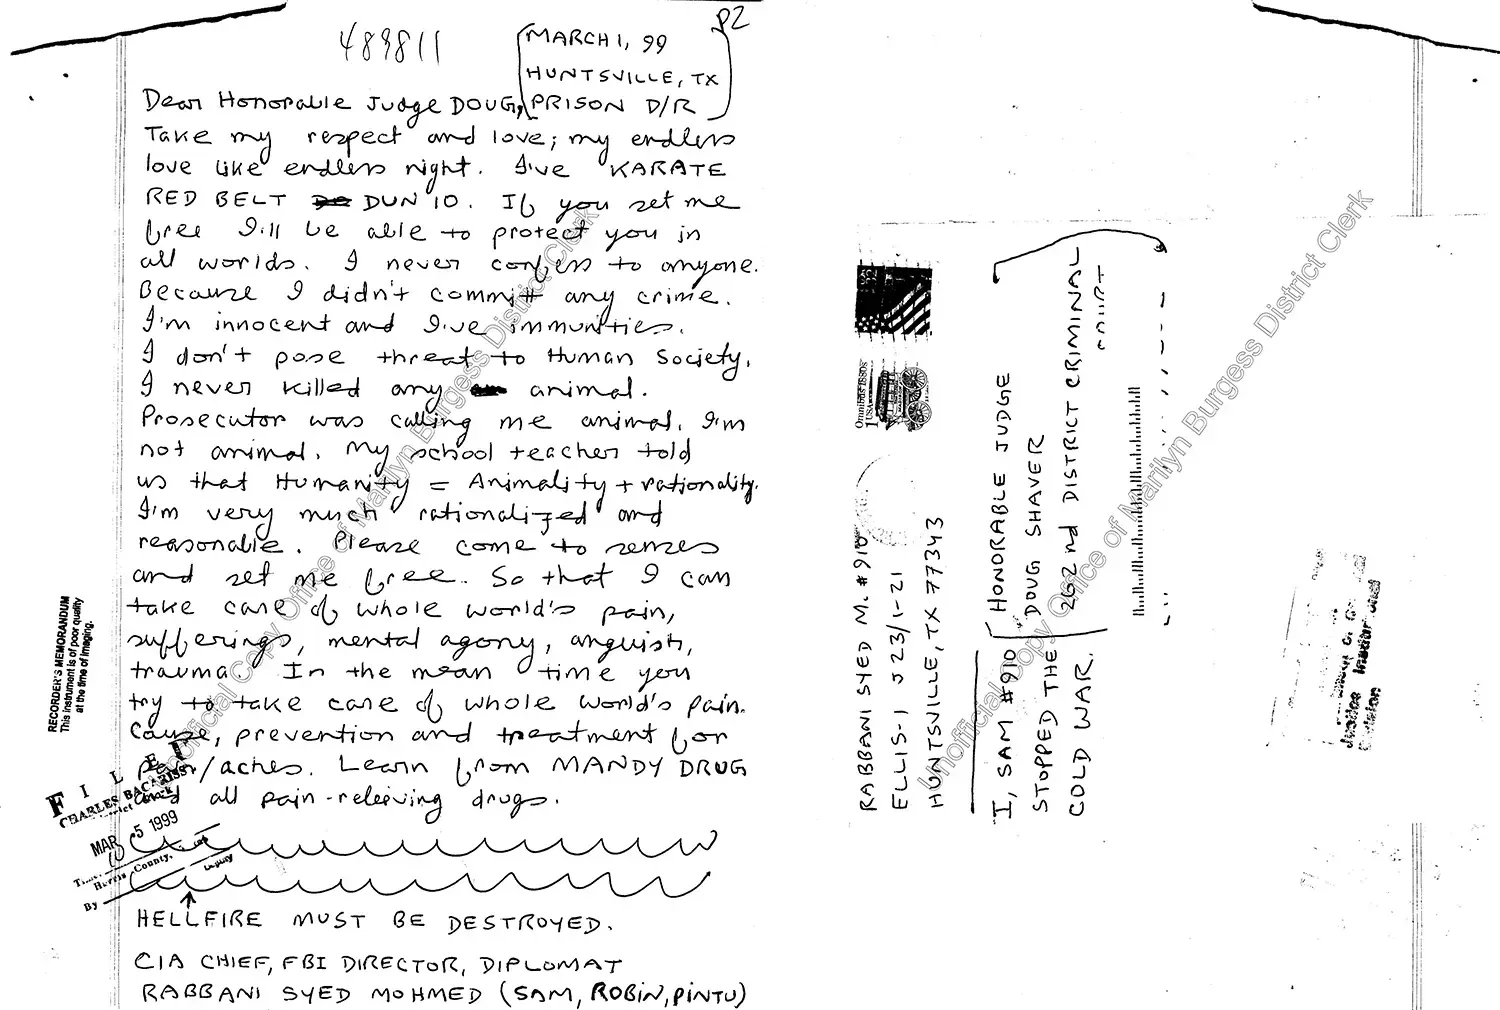 P2
489811
MARCH 1, 99
HUNTSVILLE, TX
PRISON D/R
Dear Honorable Judge DOUG,
Take my respect and love; my endless
love like endless night. I've KARATE
RED BELT DUN 10. If you set me
free I'll be able to protect you in
all worlds. I never confess to anyone.
Because I didn't commit any crime.
I'm innocent and I've immunities.
I don't pose threat to Human Society.
I never killed any animal.
Prosecutor was calling me animal. I'm
not animal. My school teacher told
us that Humanity = Animality + rationality.
I'm very much rationalized and
reasonable. Please come to senses
and set me free. So that I can
take care of whole world's pain,
sufferings, mental agony, anguish,
trauma. In the mean time you
try to take care of whole world's pain.
Cause, prevention and treatment for
pain/aches. Learn from MANDY DRUG
and all pain-relieving drugs.
HELLFIRE MUST BE DESTROYED.
CIA CHIEF, FBI DIRECTOR, DIPLOMAT
RABBANI SYED MOHMED (SAM, ROBIN, PINTU)
RECORDER'S MEMORANDUM
This instrument is of poor quality
at the time of imaging.
FILED
CHARLES BACARISSE
District Clerk
MAR 5 1999
Harris County,
By Deputy
Unofficial Copy Office of Marilyn Burgess District Clerk
Omnibus 1880s
1 USA
RABBANI SYED M. #910
ELLIS-1 J23/1-21
HUNTSVILLE, TX 77343
HONORABLE JUDGE
DOUG SHAVER
262nd DISTRICT CRIMINAL
COURT
I, SAM #910
STOPPED THE
COLD WAR.
Unofficial Copy Office of Marilyn Burgess District Clerk
Justice
Division